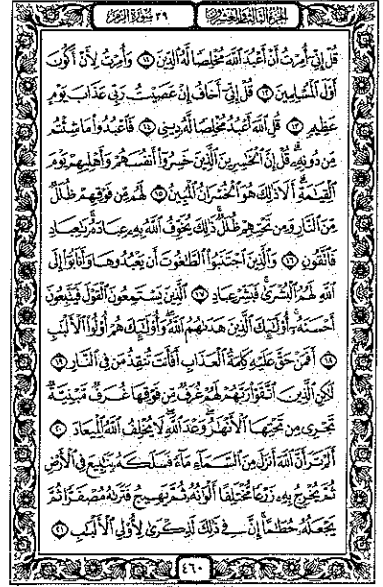 الجزء الثالث والعشرون
٣٩ سورة الزمر
قُلْ إِنِّىٓ أُمِرْتُ أَنْ أَعْبُدَ ٱللَّهَ مُخْلِصًا لَّهُ ٱلدِّينَ ١١ وَأُمِرْتُ لِأَنْ أَكُونَ
أَوَّلَ ٱلْمُسْلِمِينَ ١٢ قُلْ إِنِّىٓ أَخَافُ إِنْ عَصَيْتُ رَبِّى عَذَابَ يَوْمٍ
عَظِيمٍ ١٣ قُلِ ٱللَّهَ أَعْبُدُ مُخْلِصًا لَّهُۥ دِينِى ١٤ فَٱعْبُدُوا۟ مَا شِئْتُم
مِّن دُونِهِۦ ۗ قُلْ إِنَّ ٱلْخَـٰسِرِينَ ٱلَّذِينَ خَسِرُوٓا۟ أَنفُسَهُمْ وَأَهْلِيهِمْ يَوْمَ
ٱلْقِيَـٰمَةِ ۗ أَلَا ذَٰلِكَ هُوَ ٱلْخُسْرَانُ ٱلْمُبِينُ ١٥ لَهُم مِّن فَوْقِهِمْ ظُلَلٌ
مِّنَ ٱلنَّارِ وَمِن تَحْتِهِمْ ظُلَلٌ ۚ ذَٰلِكَ يُخَوِّفُ ٱللَّهُ بِهِۦ عِبَادَهُۥ ۚ يَـٰعِبَادِ
فَٱتَّقُونِ ١٦ وَٱلَّذِينَ ٱجْتَنَبُوا۟ ٱلطَّـٰغُوتَ أَن يَعْبُدُوهَا وَأَنَابُوٓا۟ إِلَى
ٱللَّهِ لَهُمُ ٱلْبُشْرَىٰ ۚ فَبَشِّرْ عِبَادِ ١٧ ٱلَّذِينَ يَسْتَمِعُونَ ٱلْقَوْلَ فَيَتَّبِعُونَ
أَحْسَنَهُۥٓ ۚ أُو۟لَـٰٓئِكَ ٱلَّذِينَ هَدَىٰهُمُ ٱللَّهُ ۖ وَأُو۟لَـٰٓئِكَ هُمْ أُو۟لُوا۟ ٱلْأَلْبَـٰبِ
١٨ أَفَمَنْ حَقَّ عَلَيْهِ كَلِمَةُ ٱلْعَذَابِ أَفَأَنتَ تُنقِذُ مَن فِى ٱلنَّارِ ١٩
لَـٰكِنِ ٱلَّذِينَ ٱتَّقَوْا۟ رَبَّهُمْ لَهُمْ غُرَفٌ مِّن فَوْقِهَا غُرَفٌ مَّبْنِيَّةٌ
تَجْرِى مِن تَحْتِهَا ٱلْأَنْهَـٰرُ ۖ وَعْدَ ٱللَّهِ ۖ لَا يُخْلِفُ ٱللَّهُ ٱلْمِيعَادَ ٢٠
أَلَمْ تَرَ أَنَّ ٱللَّهَ أَنزَلَ مِنَ ٱلسَّمَآءِ مَآءً فَسَلَكَهُۥ يَنَـٰبِيعَ فِى ٱلْأَرْضِ
ثُمَّ يُخْرِجُ بِهِۦ زَرْعًا مُّخْتَلِفًا أَلْوَٰنُهُۥ ثُمَّ يَهِيجُ فَتَرَىٰهُ مُصْفَرًّا ثُمَّ
يَجْعَلُهُۥ حُطَـٰمًا ۚ إِنَّ فِى ذَٰلِكَ لَذِكْرَىٰ لِأُو۟لِى ٱلْأَلْبَـٰبِ ٢١
٤٦٠